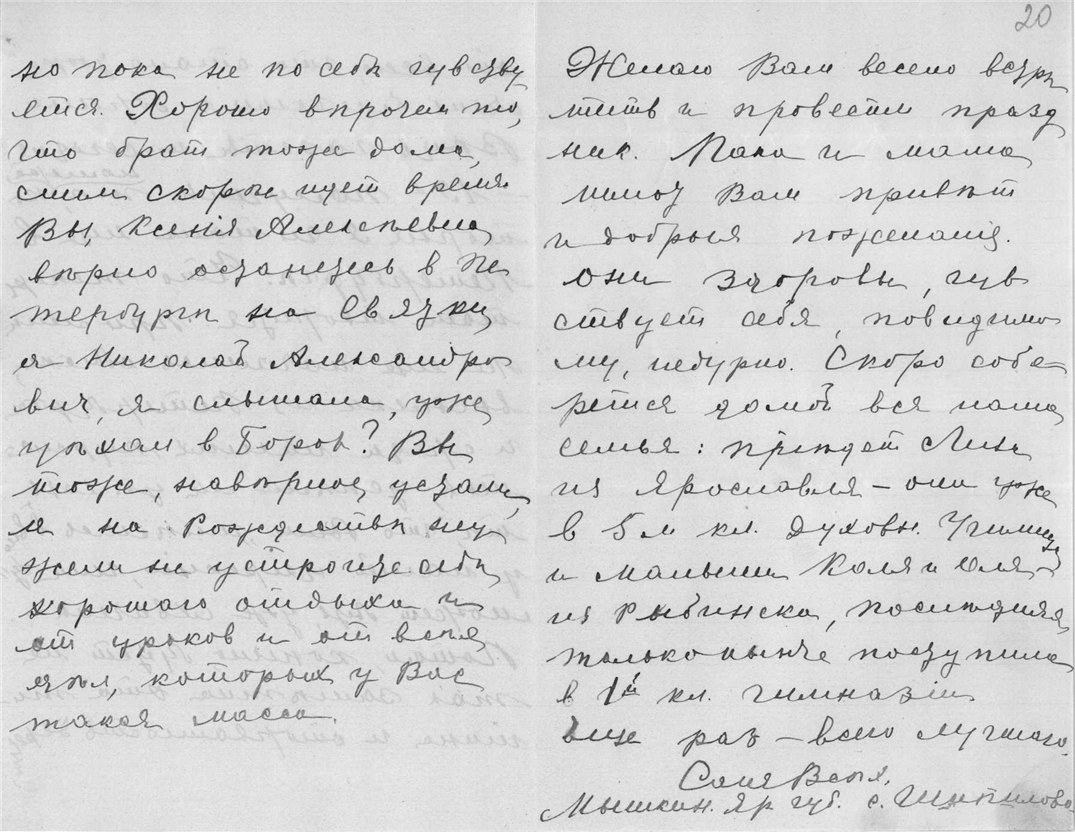 20
но пока не по себѣ чувству
ется. Хорошо впрочем то,
что брат тоже дома,
с ним скорѣе идет время.
Вы, Ксенія Алексѣевна,
вѣрно останетесь в Пе
тербургѣ на Святки,
а Николай Александро
вич, я слышала, уже
уѣхал в Боров? Вы
тоже, навѣрное, устали,
и на Рождествѣ неу
жели не устроите себѣ
хорошаго отдыха и
от уроков и от всѣх
дѣл, которых у Вас
такая масса.
Желаю Вам весело встрѣ
тить и провести празд
ник. Папа и мама
шлют Вам привѣт
и добрыя пожеланія.
Они здоровы, чув
ствует себя, повидимо
му, недурно. Скоро собе
рется домой вся наша
семья: пріѣдет Линь
из Ярославля – они уже
в 5м кл. духовн. Училища
и малыши Коля и Оля –
из Рыбинска, послѣдняя
только нынче поступила
в 1й кл. гимназіи.
Еще раз – всего лучшаго.
Мышкин. Яр губ. с. Шипилово